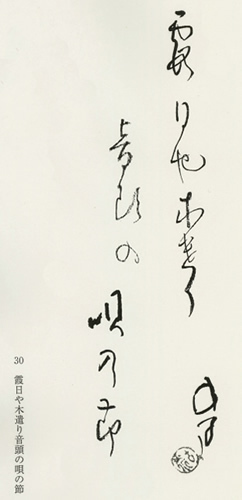 霞日や木遣り
音頭の
唄の節
30 霞日や木遣り音頭の唄の節